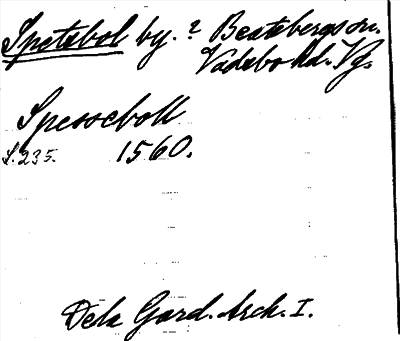 Spetsbol by. ? Beatebergs sn.
Vadsbo hd. Vg.
Spesseboll
S. 235. 1560.
Dela Gard. Arch. I.